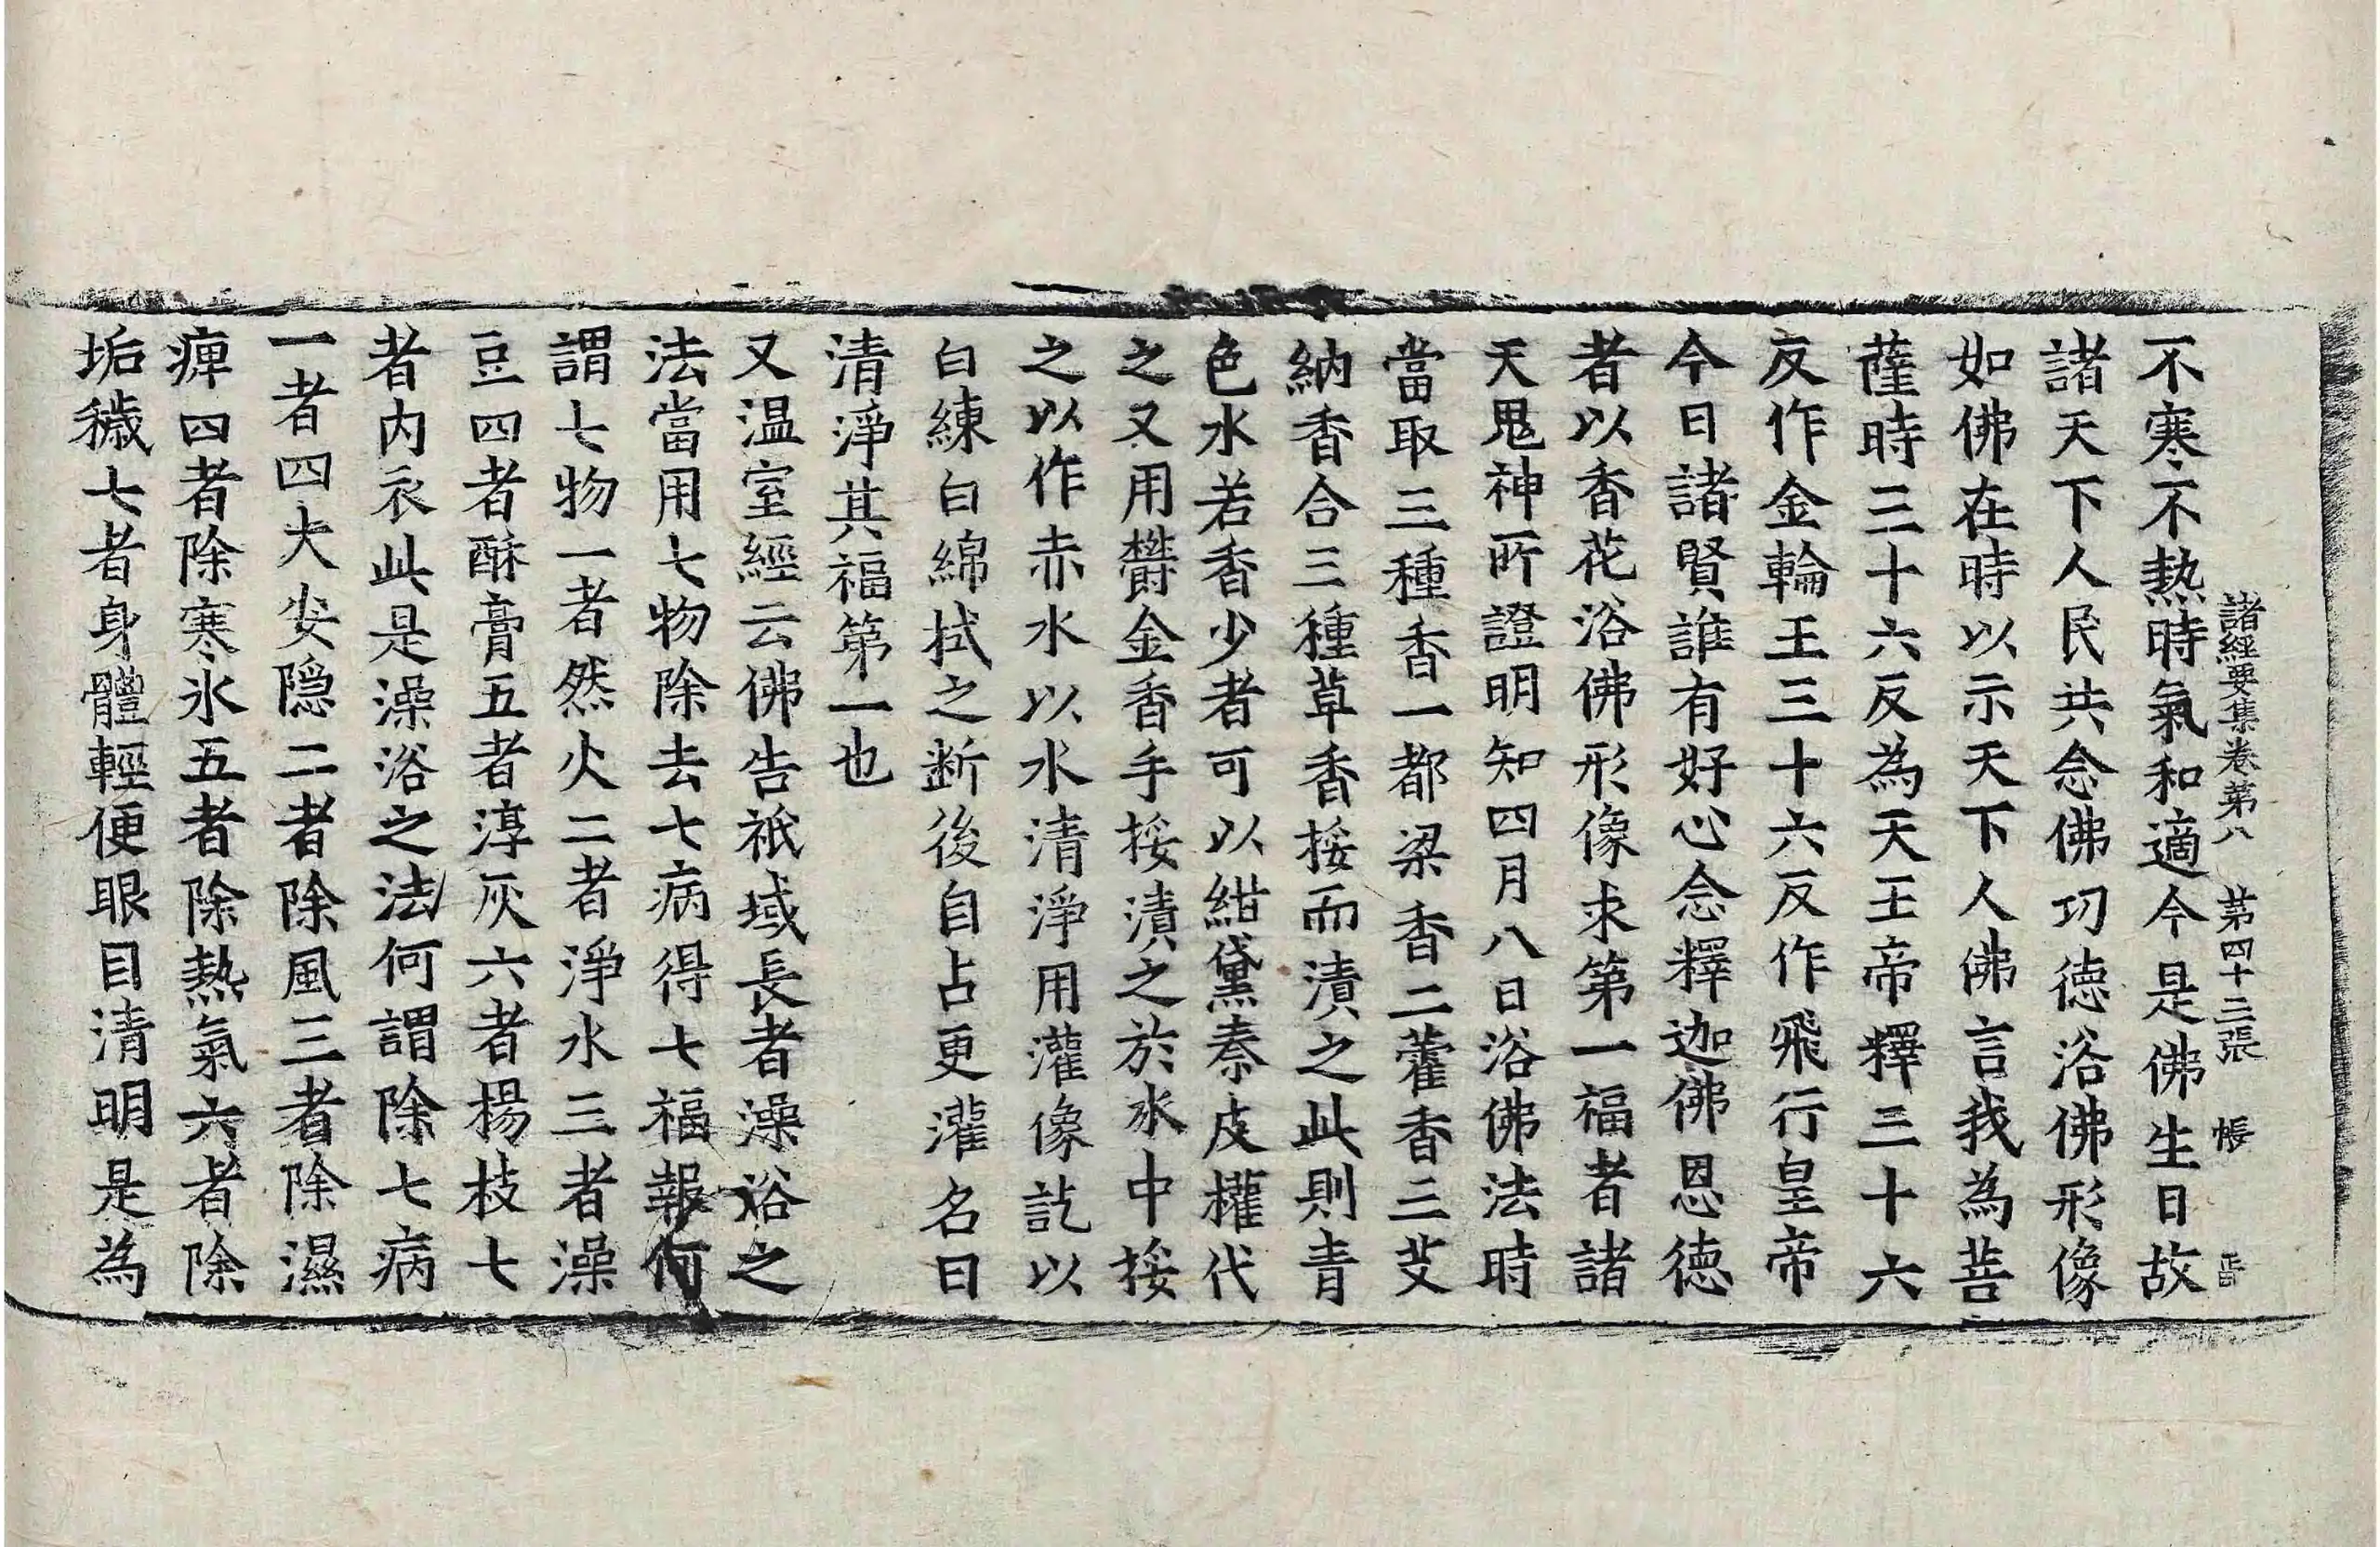 諸經要集卷第八　第四十三張　帳
不寒不熱時氣和適今是佛生日故
諸天下人民共念佛功德浴佛形像
如佛在時以示天下人佛言我為菩
薩時三十六反為天王帝釋三十六
反作金輪王三十六反作飛行皇帝
今日諸賢誰有好心念釋迦佛恩德
者以香花浴佛形像求第一福者諸
天鬼神所證明知四月八日浴佛法時
當取三種香一都梁香二藿香三艾
納香合三種草香挼而漬之此則青
色水若香少者可以紺黛秦皮權代
之又用欝金香手挼漬之於水中挼
之以作赤水以水清淨用灌像訖以
白練白綿拭之断後自占更灌名曰
清淨其福第一也
又温室經云佛告祇域長者澡浴之
法當用七物除去七病得七福報何
謂七物一者然火二者淨水三者澡
豆四者酥膏五者淳灰六者楊枝七
者内衣此是澡浴之法何謂除七病
一者四大安隱二者除風三者除濕
痺四者除寒氷五者除熱氣六者除
垢穢七者身體輕便眼目清明是為